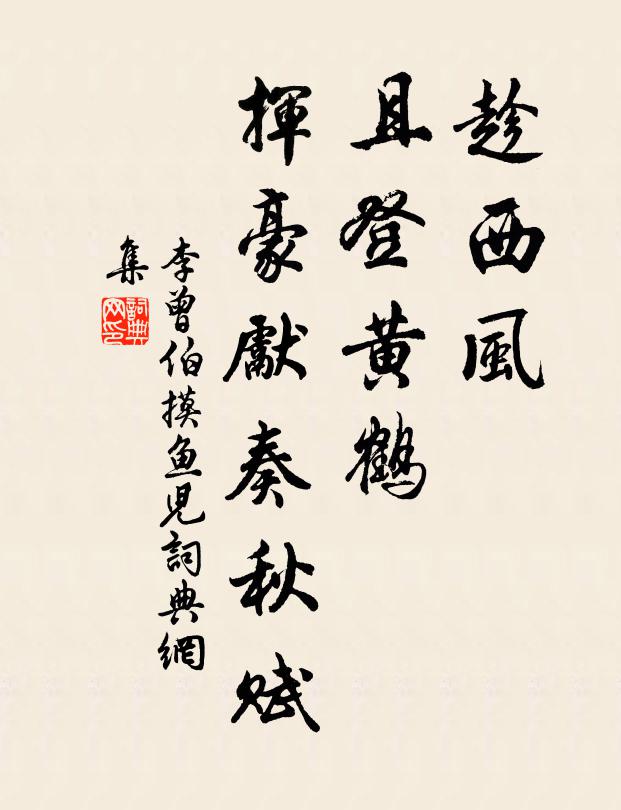 趁西風
且登黃鶴
揮豪獻奏秋賦
李曾伯摸鱼児詞典網
集
詞典網印